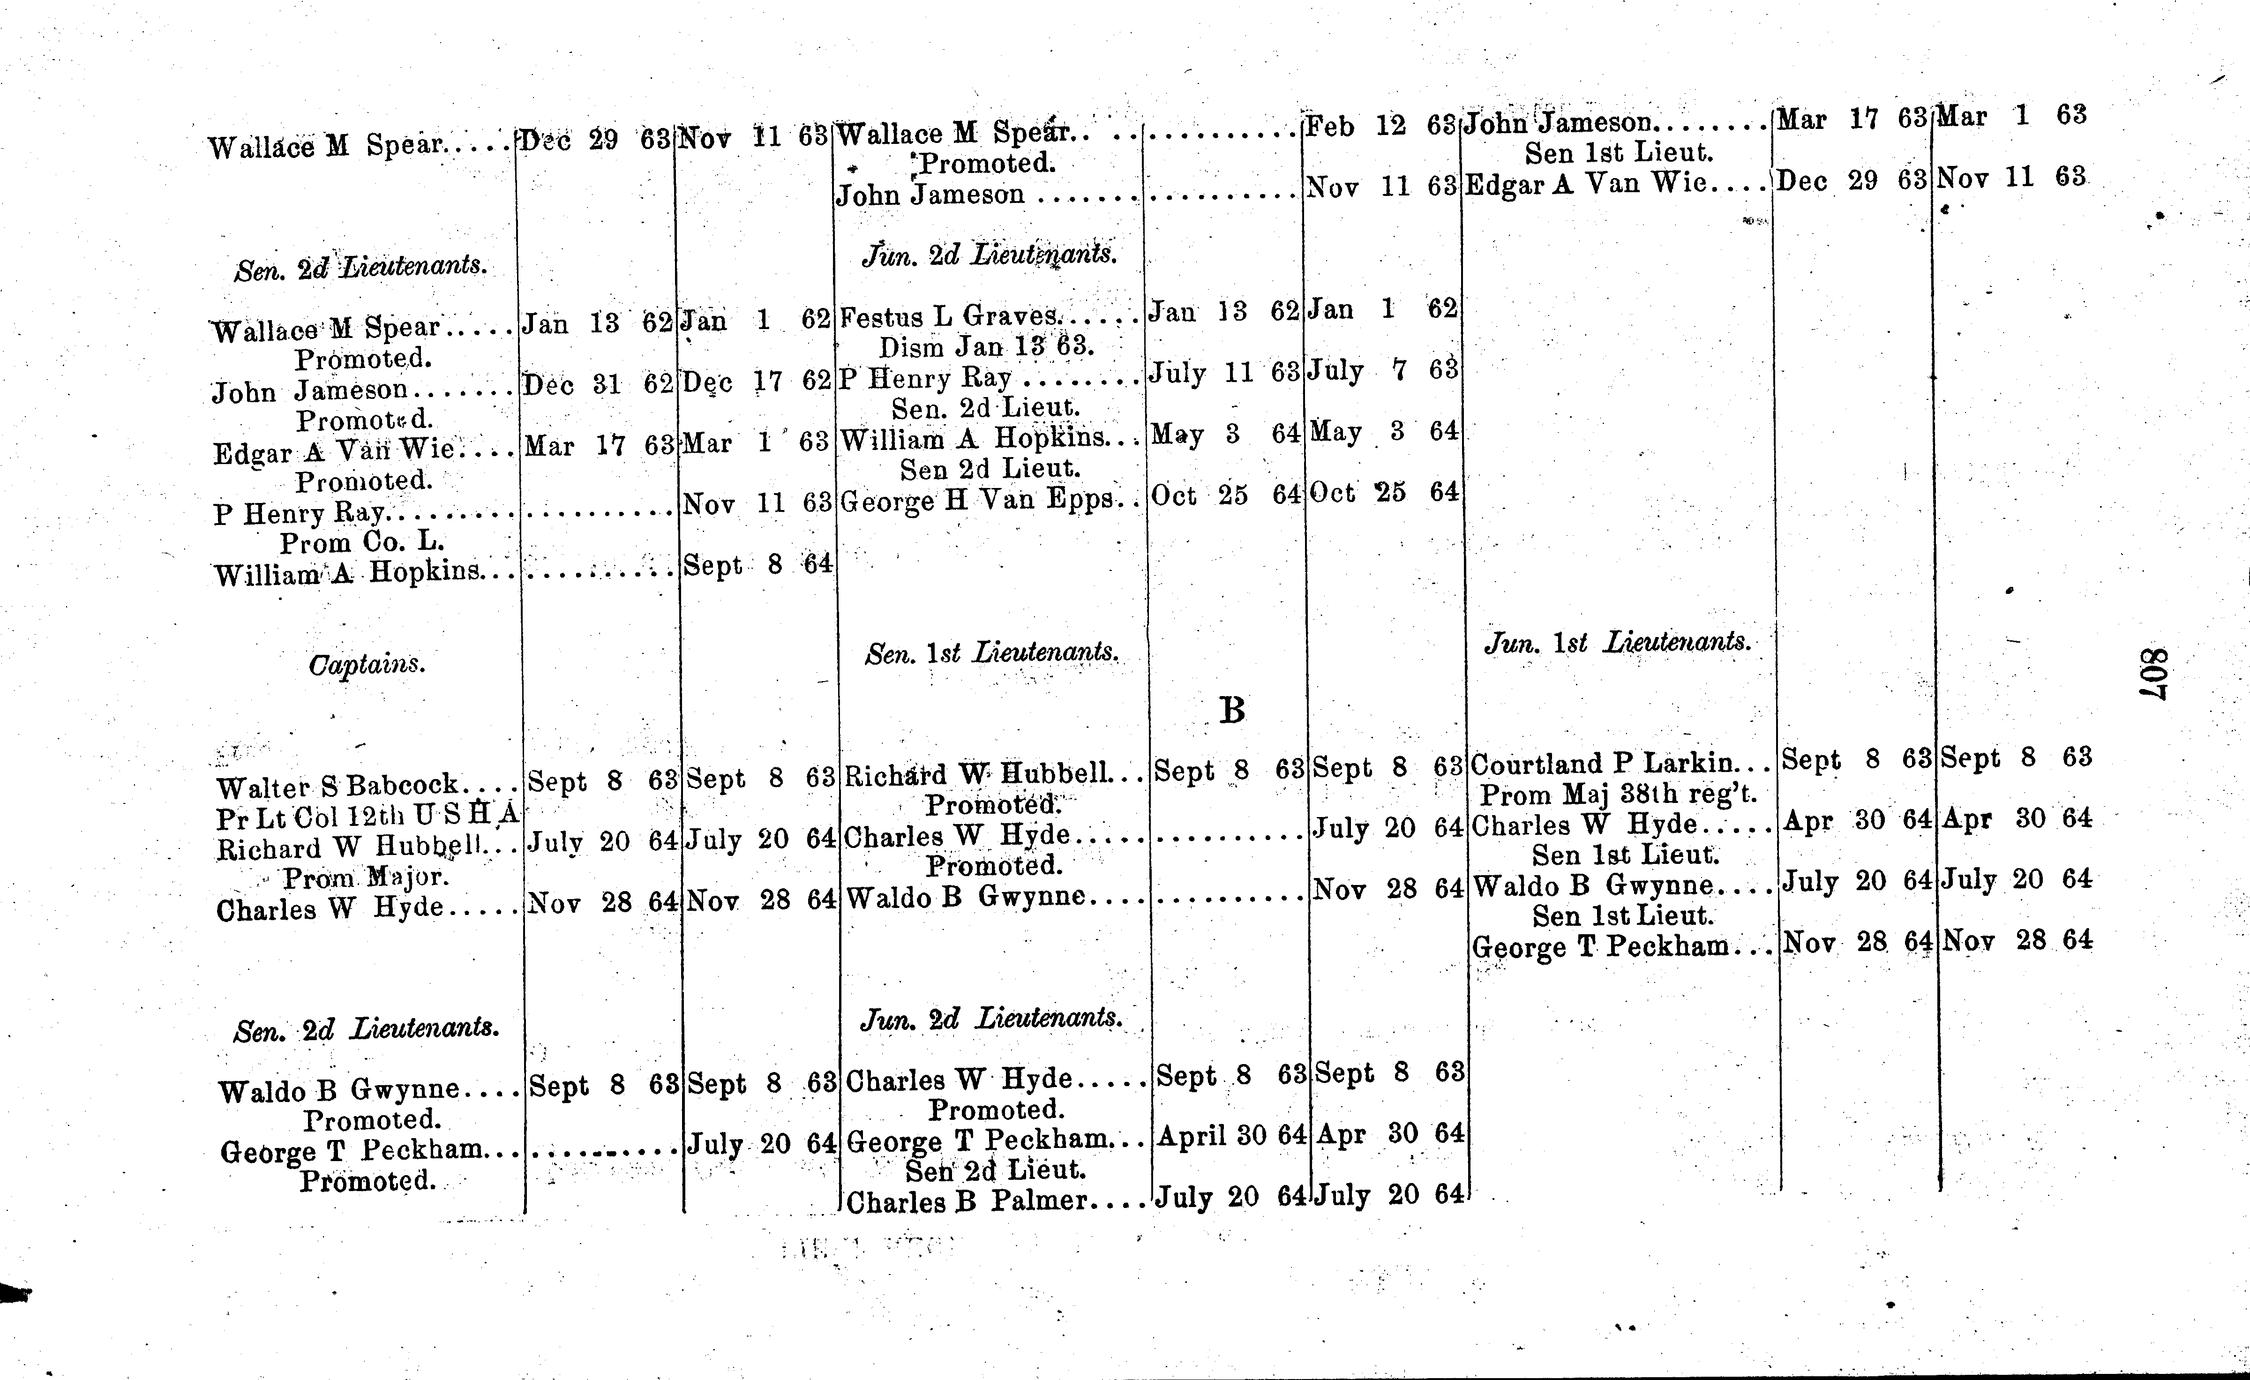 Wallace M Spear..... Dec 29 63 Nov 11 63 Wallace M Spear.. .. .......... Feb 12 63 John Jameson........ Mar 17 63 Mar 1 63
Promoted. Sen 1st Lieut.
John Jameson ....... .......... Nov 11 63 Edgar A Van Wie.... Dec 29 63 Nov 11 63
Sen. 2d Lieutenants. Jun. 2d Lieutenants.
Wallace M Spear..... Jan 13 62 Jan 1 62 Festus L Graves...... Jan 13 62 Jan 1 62
Promoted. Dism Jan 13 63.
John Jameson....... Dec 31 62 Dec 17 62 P Henry Ray ........ July 11 63 July 7 63
Promoted. Sen. 2d Lieut.
Edgar A Van Wie.... Mar 17 63 Mar 1 63 William A Hopkins... May 3 64 May 3 64
Promoted. Sen 2d Lieut.
P Henry Ray......... .......... Nov 11 63 George H Van Epps.. Oct 25 64 Oct 25 64
Prom Co. L.
William A Hopkins... .......... Sept 8 64
Captains. Sen. 1st Lieutenants. Jun. 1st Lieutenants.
807
B
Walter S Babcock.... Sept 8 63 Sept 8 63 Richard W Hubbell... Sept 8 63 Sept 8 63 Courtland P Larkin... Sept 8 63 Sept 8 63
Pr Lt Col 12th U S H A Promoted. Prom Maj 38th reg't.
Richard W Hubbell... July 20 64 July 20 64 Charles W Hyde..... .......... July 20 64 Charles W Hyde..... Apr 30 64 Apr 30 64
Prom Major. Promoted. Sen 1st Lieut.
Charles W Hyde..... Nov 28 64 Nov 28 64 Waldo B Gwynne.... .......... Nov 28 64 Waldo B Gwynne.... July 20 64 July 20 64
Sen 1st Lieut.
George T Peckham... Nov 28 64 Nov 28 64
Sen. 2d Lieutenants. Jun. 2d Lieutenants.
Waldo B Gwynne.... Sept 8 63 Sept 8 63 Charles W Hyde..... Sept 8 63 Sept 8 63
Promoted. Promoted.
George T Peckham... .......... July 20 64 George T Peckham... April 30 64 Apr 30 64
Promoted. Sen 2d Lieut.
Charles B Palmer.... July 20 64 July 20 64